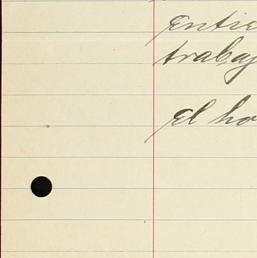 entie
trabaj
El ho